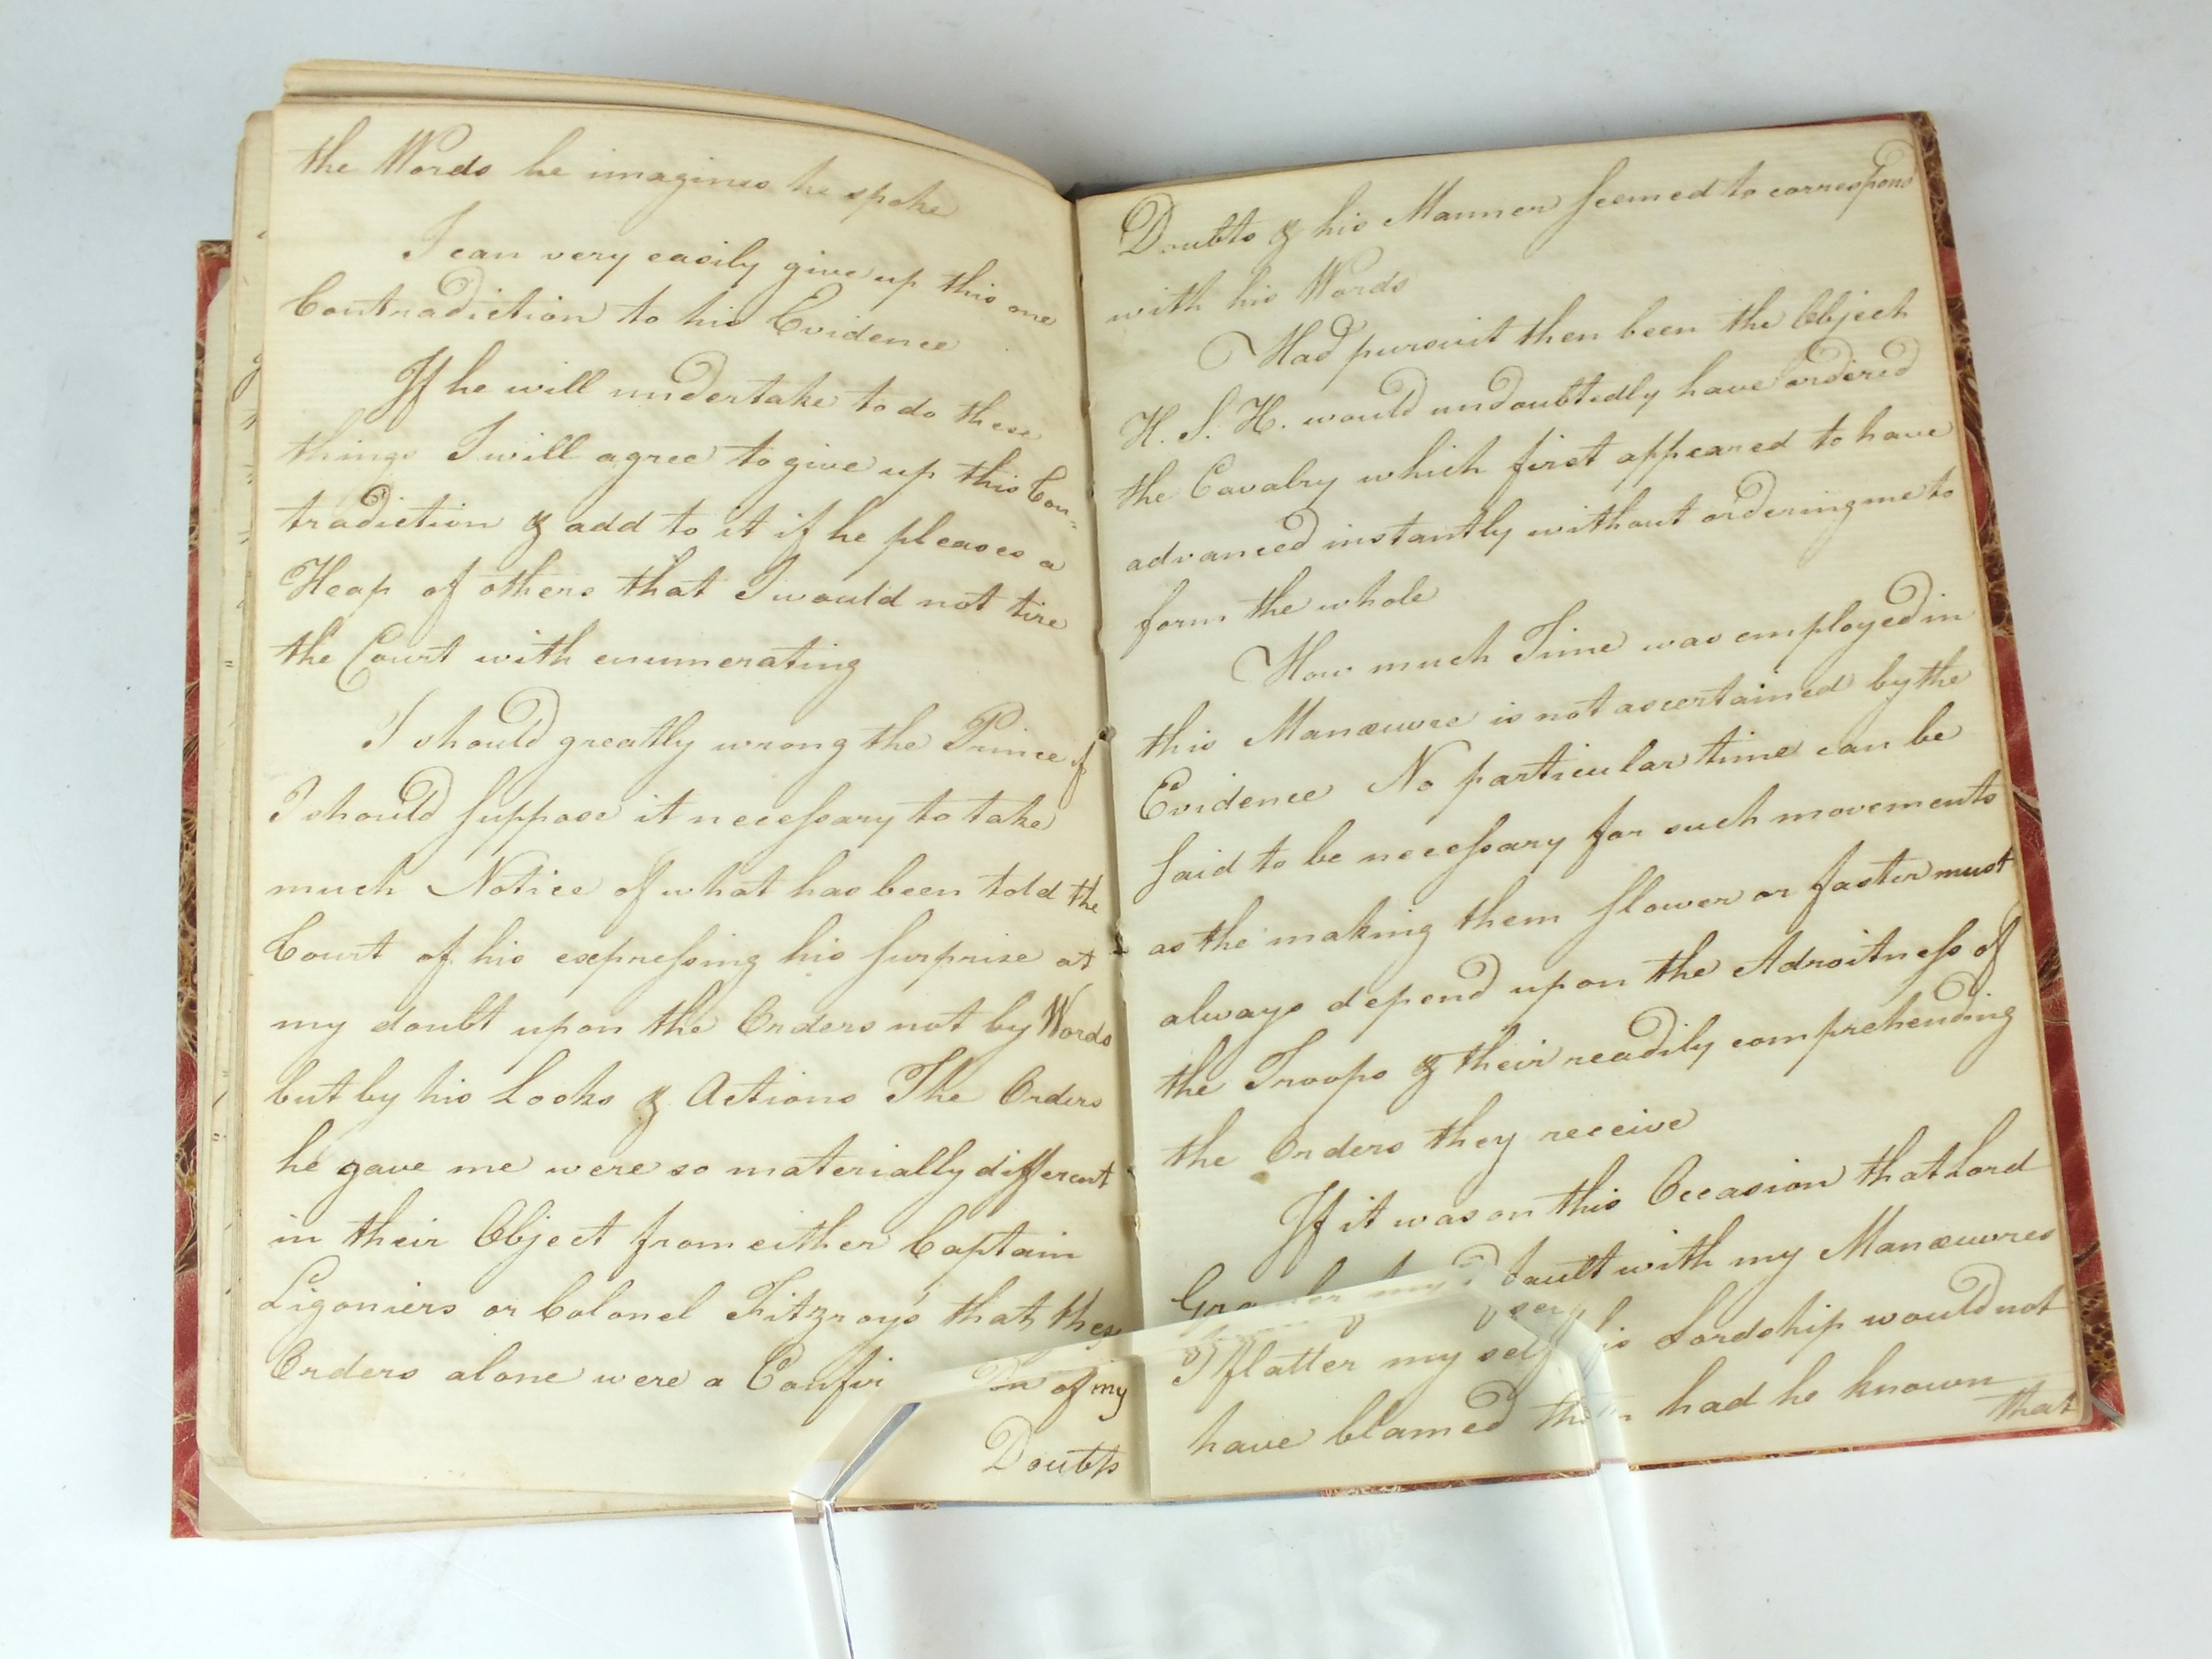 the Words he imagines he spoke
I can very easily give up this one
Contradiction to his Evidence
If he will undertake to do these
things I will agree to give up this Con=
tradiction & add to it if he pleases a
Heap of others that I would not tire
the Court with enumerating
I should greatly wrong the Prince if
I should suppose it necessary to take
much Notice of what has been told the
Court of his expressing his surprise at
my doubt upon the Orders not by Words
but by his Looks & Actions The Orders
he gave me were so materially different
in their Object from either Captain
Ligoniers or Colonel Fitzroys that these
Orders alone were a of my
Doubts
Doubts & his Manner seemed to correspond
with his Words
Had pursuit then been the Object
H. S. H. would undoubtedly have ordered
the Cavalry which first appeared to have
advanced instantly without ordering me to
form the whole
How much Time was employed in
this Manœuvre is not ascertained by the
Evidence No particular time can be
said to be necessary for such movements
as the making them slower or faster must
always depend upon the Adroitness of
the Troops & their readily comprehending
the Orders they receive
If it was on this Occasion that Lord
fault with my Manœuvres
I flatter my self his Lordship would not
have blamed them had he known
that